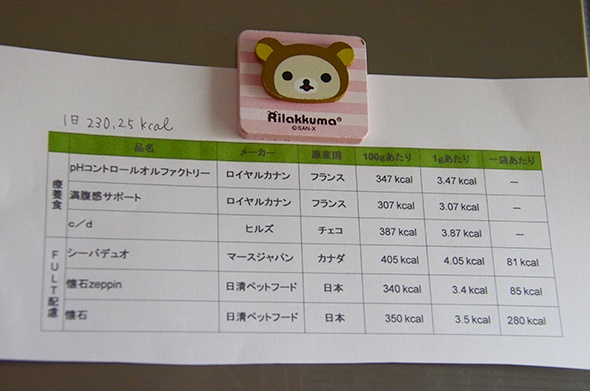 Rilakkuma®
©SAN-X
1日 230.25 kcal
品名 メーカー 原産国 100gあたり 1gあたり 一袋あたり
療養食
pHコントロールオルファクトリー ロイヤルカナン フランス 347 kcal 3.47 kcal ―
満腹感サポート ロイヤルカナン フランス 307 kcal 3.07 kcal ―
c/d ヒルズ チェコ 387 kcal 3.87 kcal ―
FULT配慮
シーバデュオ マースジャパン カナダ 405 kcal 4.05 kcal 81 kcal
懐石zeppin 日清ペットフード 日本 340 kcal 3.4 kcal 85 kcal
懐石 日清ペットフード 日本 350 kcal 3.5 kcal 280 kcal